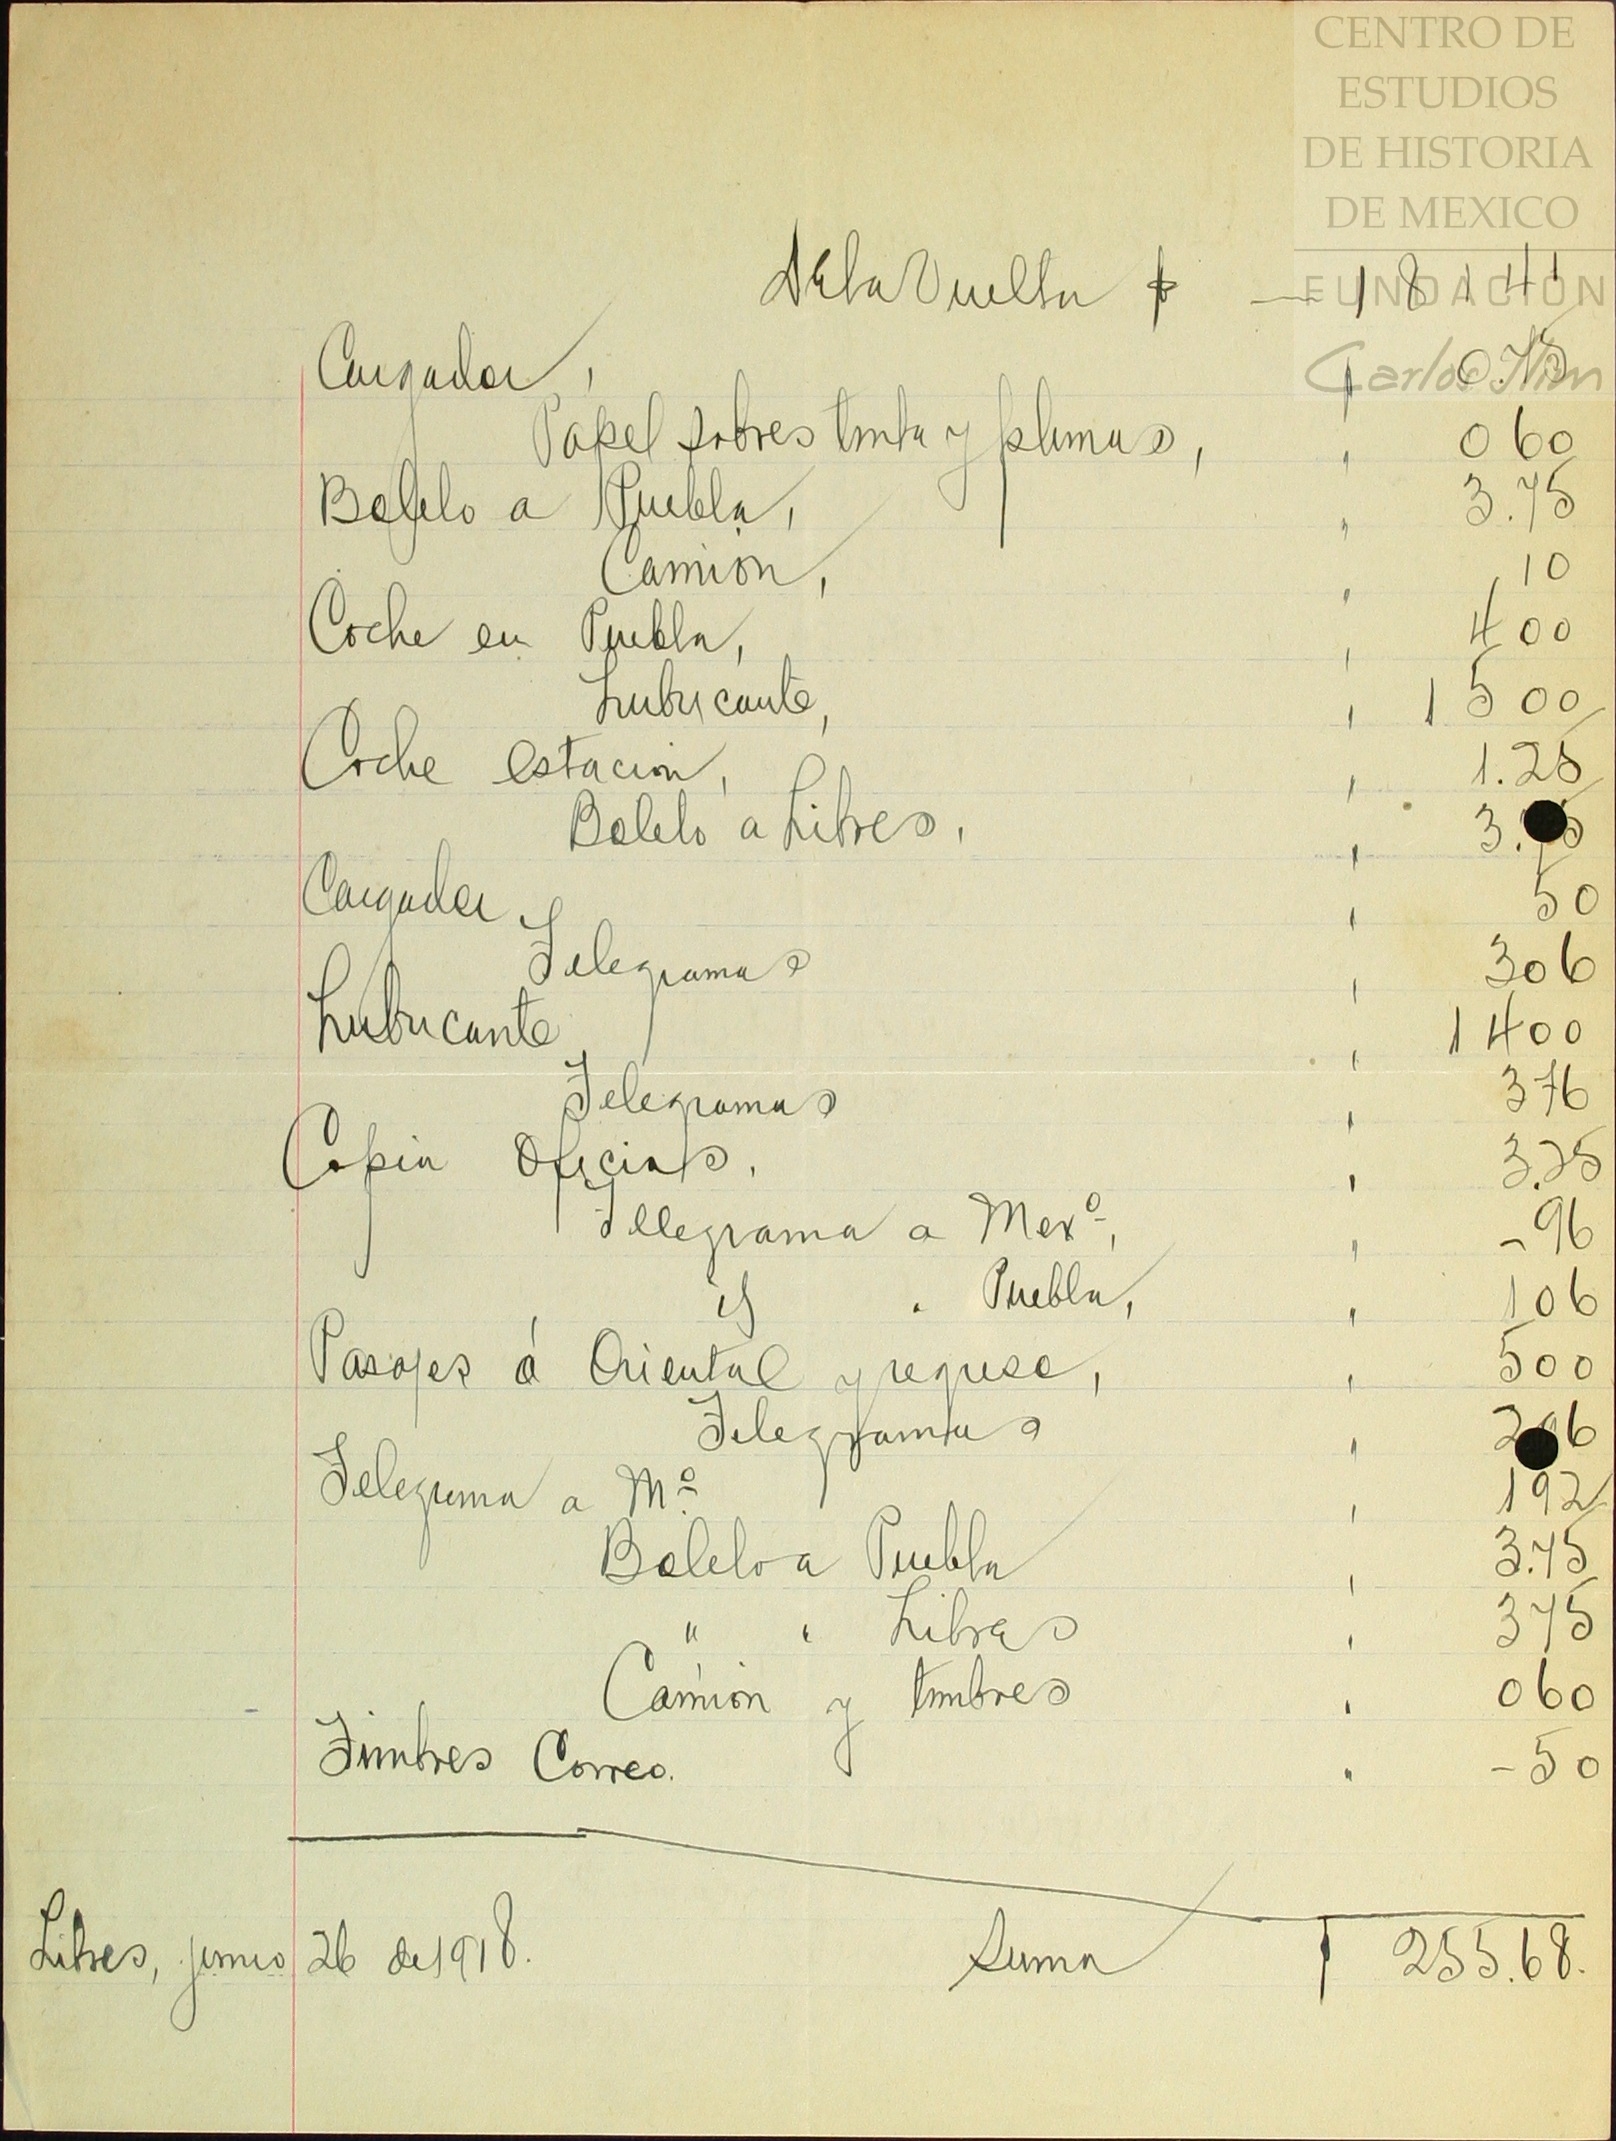 CENTRO DE
ESTUDIOS
DE HISTORIA
DE MEXICO
FUNDACIÓN
Carlos Slim
De la Vuelta $ — 181 41
Cargador, " 0.75
Papel sobres tinta y plumas, " 0 60
Boleto a Puebla, " 3.75
Camión, " 10
Coche en Puebla, " 4 00
Lubricante, " 15 00
Coche estación, " 1.25
Boleto a Libres, " 3. 5
Cargador " 50
Telegramas " 3 06
Lubricante " 14 00
Telegramas " 3 76
Copia Oficios, " 3.25
Telegrama a Mexº, " - 96
" Puebla, " 1 06
Pasajes á Oriental y regreso, " 5 00
Telegramas " 2 6
Telegrama a Mº " 1 92
Boleto a Puebla " 3.75
" " Libres " 3 75
Camión y timbres " 0 60
Timbres Correo. " - 50
Libres, junio 26 de 1918. Suma $ 255.68.